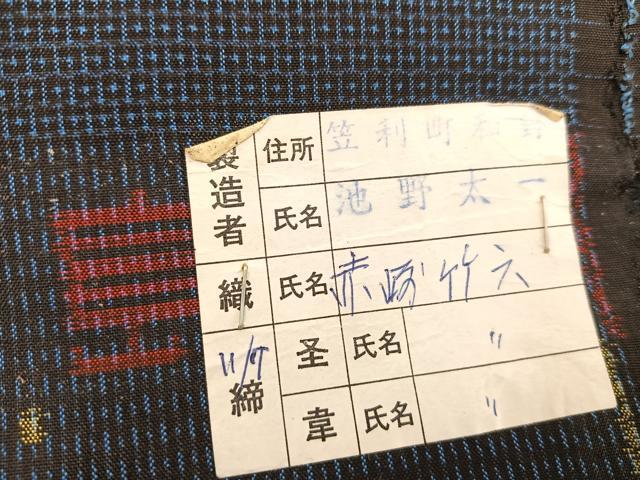 製造者 住所 笠利町和野
氏名 池野太一
織 氏名 赤崎竹六
締 圣 氏名 〃
11/7
韋 氏名 〃